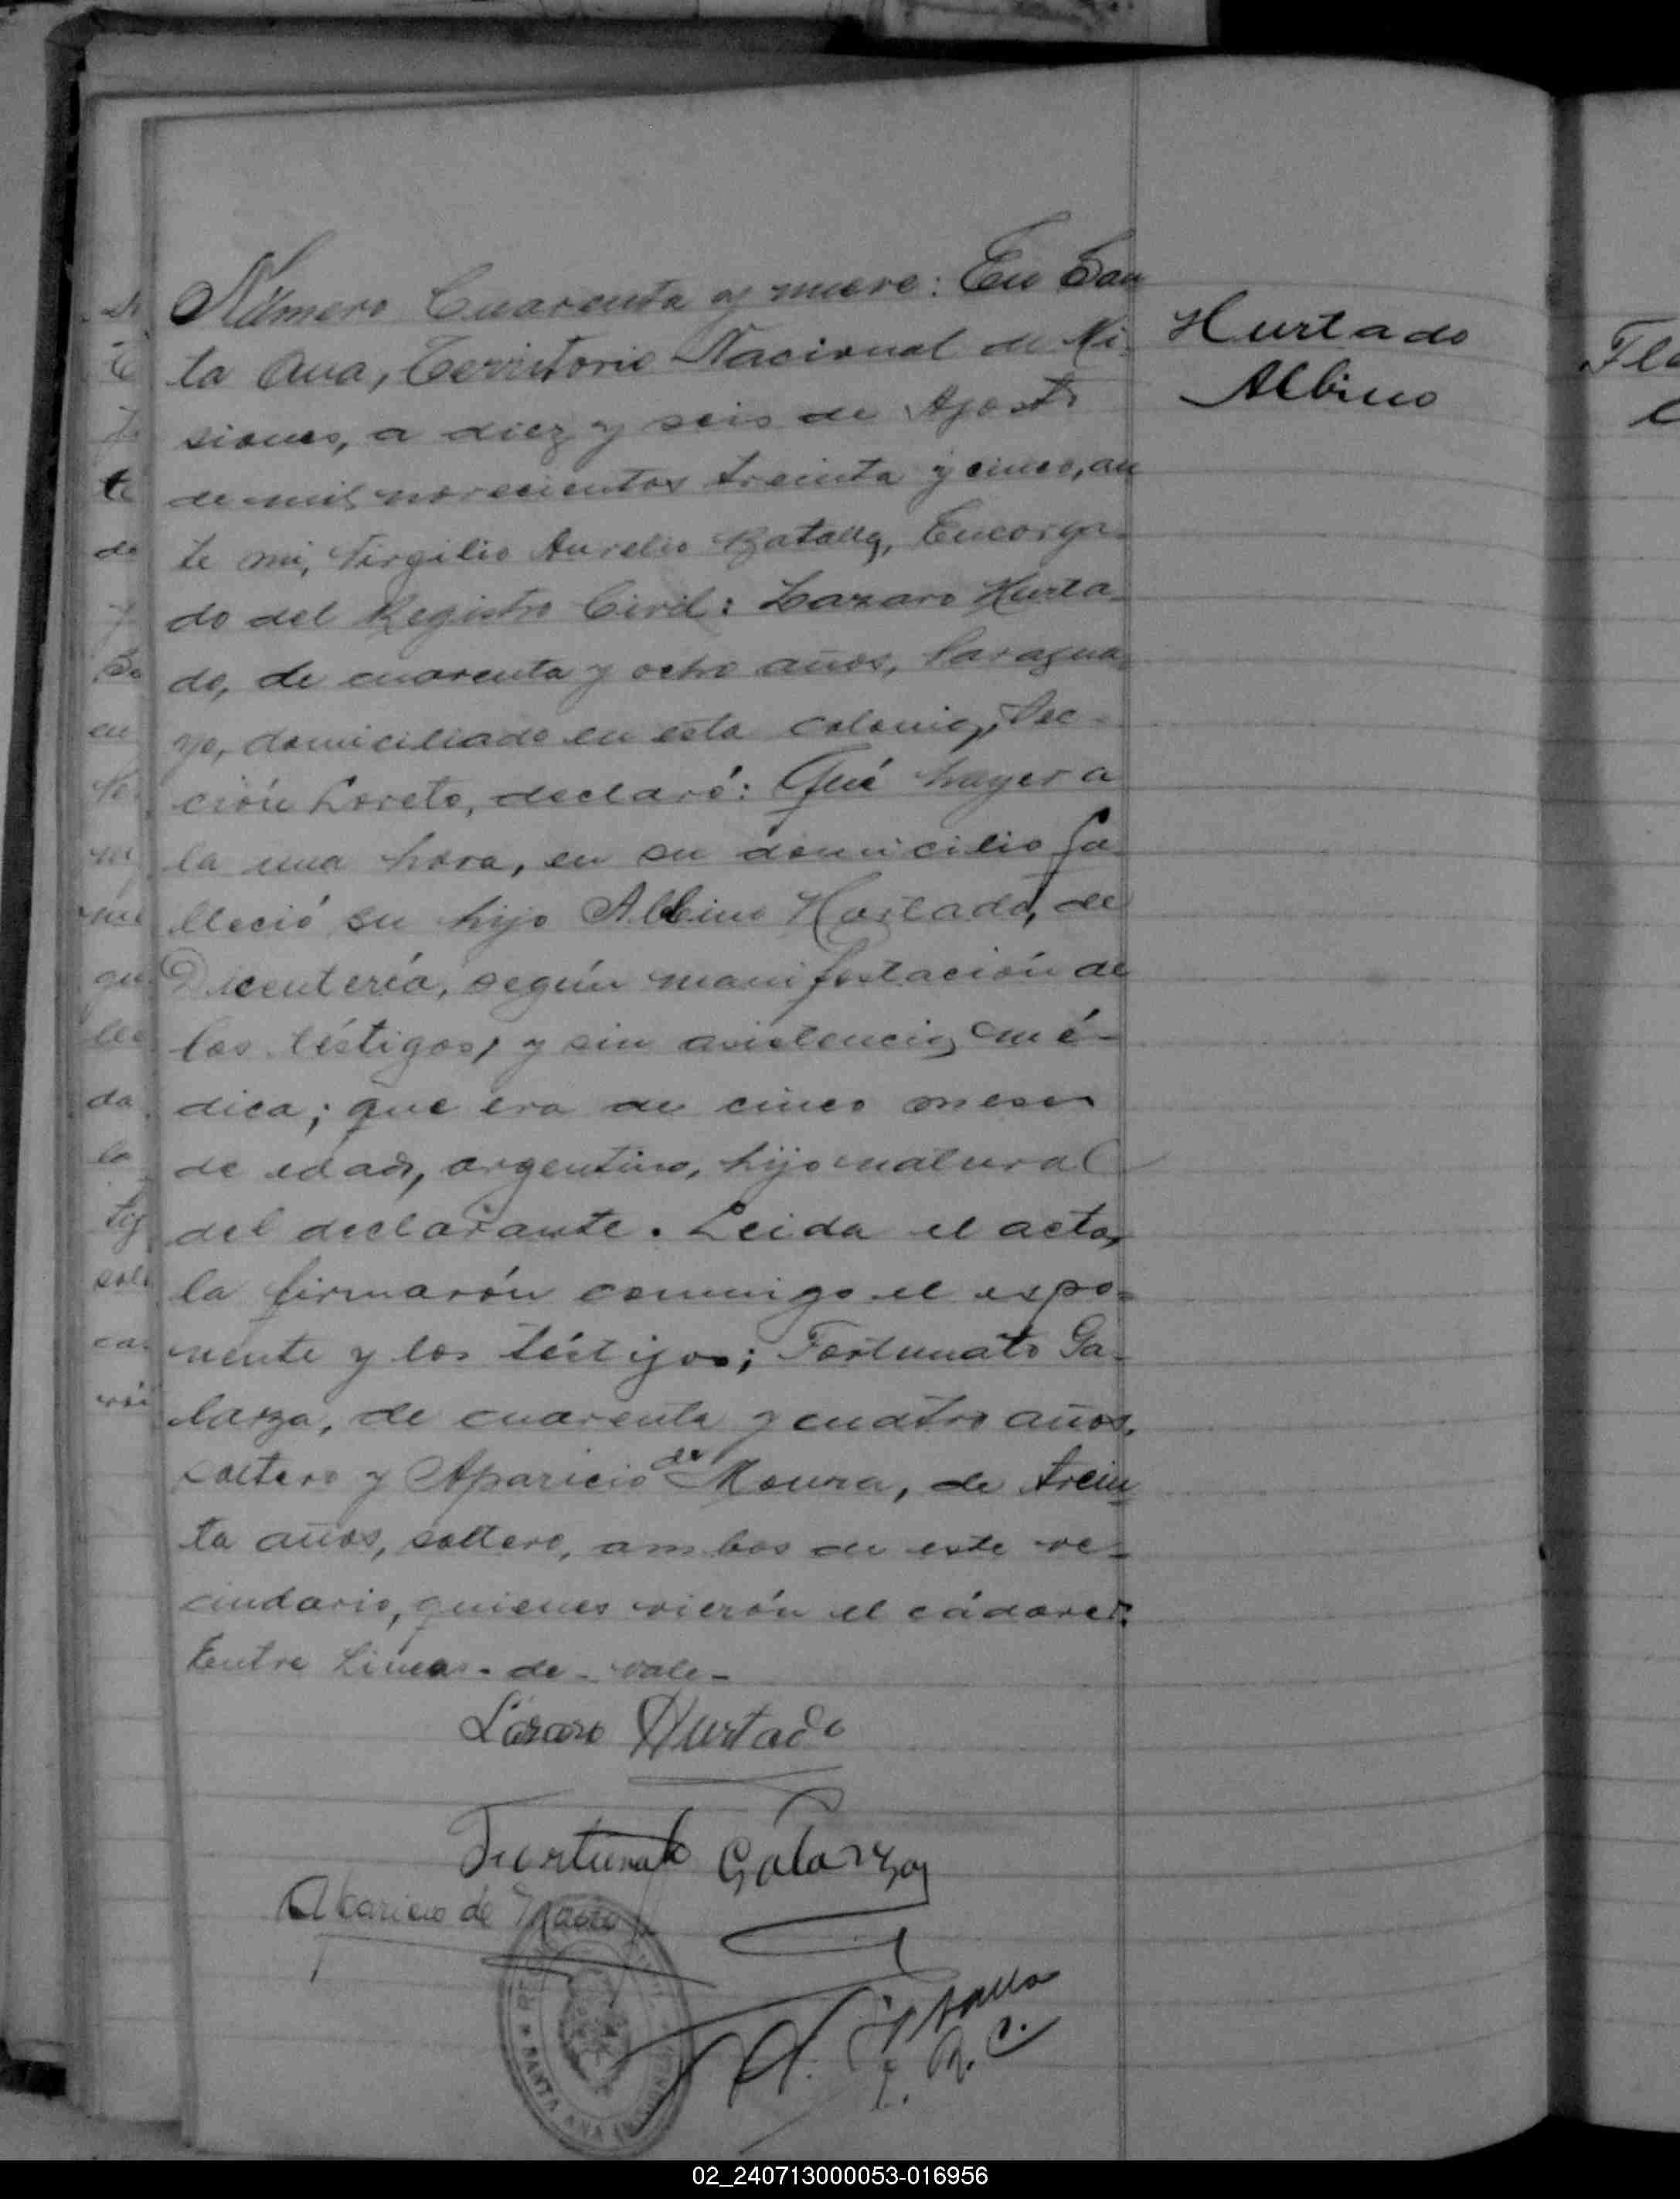 Número Cuarenta y nueve: En San
ta Ana, Territorio Nacional de Mi-
siones, a diez y seis de Agosto
de mil novecientos treinta y cinco, an
te mi, Virgilio Aurelio Batalla, Encarga-
do del Registro Civil: Lazaro Hurta-
do, de cuarenta y ocho años, Paragua-
yo, domiciliado en esta colonia, Sec-
ción Loreto, declaró: Qué hayer a
la una hora, en su domicilio fa-
lleció su hijo Albino Hurtado, de
Dicentería, según manifestación de
los téstigos, y sin asistencia mé-
dica; que era de cinco meses
de edad, argentino, hijo natural
del declarante. Leida el acta,
la firmarón conmigo el expo-
nente y los téstigos; Fortunato Ga-
larza, de cuarenta y cuatro años,
soltero y Aparicio de Moura, de trein
ta años, soltero, ambos de este ve-
cindario, quienes vierón el cádaver.
Entre Lineas - de - vale -
Lázaro Hurtado
Furtunato Galarza
Aparicio de
E. R. C.
SANTA ANA
Hurtado
Albino
02_240713000053-016956